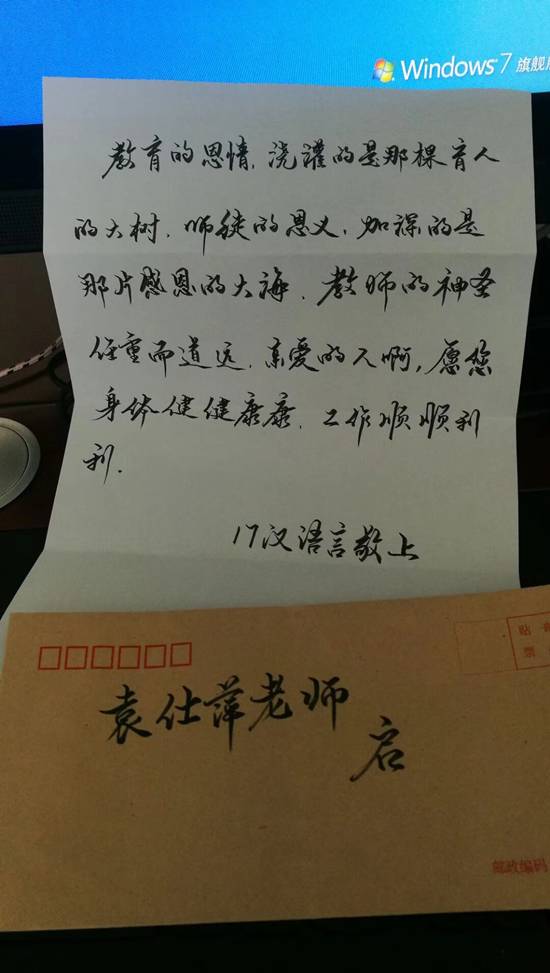 Windows 7 旗舰版
教育的恩情，浇灌的是那棵育人
的大树，师徒的恩义，加深的是
那片感恩的大海，教师的神圣
任重而道远，亲爱的人啊，愿您
身体健健康康，工作顺顺利
利.
17汉语言敬上
贴 邮
票
袁仕萍老师
启
邮政编码